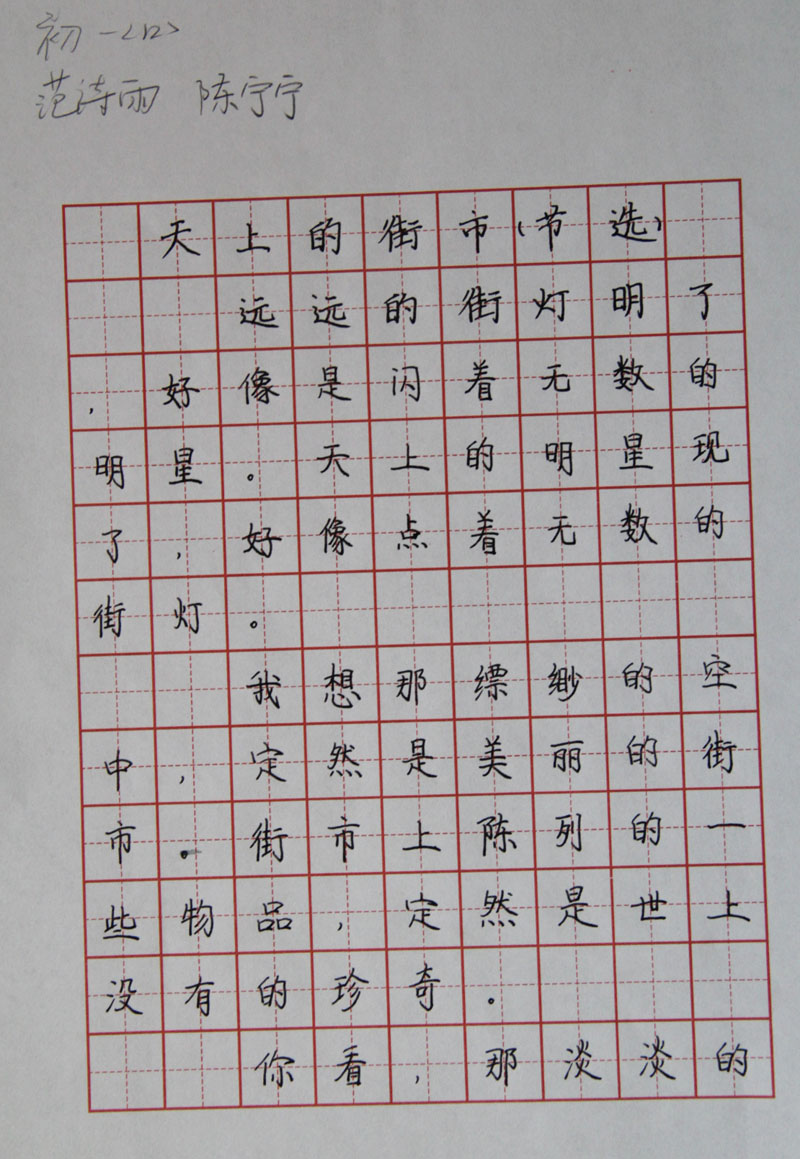 初一<12>
范诗雨 陈宁宁
天上的街市(节选)
远远的街灯明了
,好像是闪着无数的
明星。天上的明星现
了,好像点着无数的
街灯。
我想那缥缈的空
中,定然是美丽的街
市。街市上陈列的一
些物品,定然是世上
没有的珍奇。
你看,那淡淡的